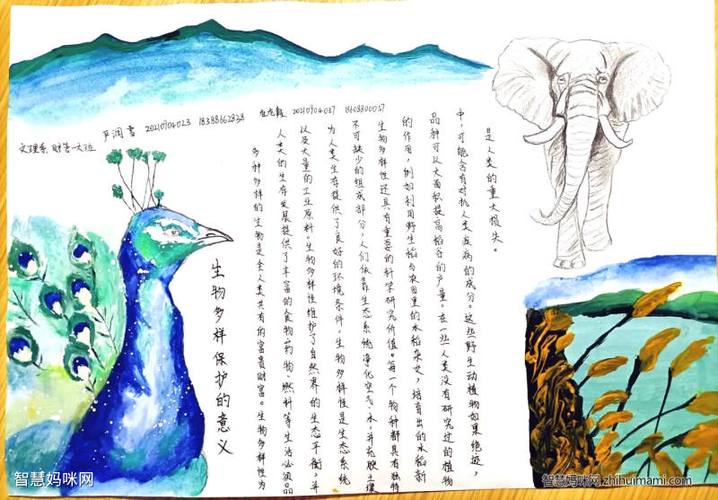 20210904023 18388662838
20210904037 18608800057
文理系
生物多样保护的意义
多种多样的生物是全人类共有的富贵财富。生物多样性为
人类的生存发展提供了丰富的食物、药物、燃料等生活必须品
以及大量的工业原料。生物多样性维护了自然界的生态平衡,并
为人类生存提供了良好的环境条件。生物多样性是生态系统
不可缺少的组成部分,人们依靠生态系统净化空气、水,并充腴土壤
生物多样性还具有重要的科学研究价值。每一个物种都具有独特
的作用,例如利用野生稻与农田里的水稻杂交,培育出的水稻新
品种可以大面积提高稻谷的产量。在一些人类没有研究过的植物
中,可能含有对抗人类疾病的成分。这些野生动植物如果绝迹,
是人类的重大损失。
智慧妈咪网
智慧妈咪网 zhihuimami.com